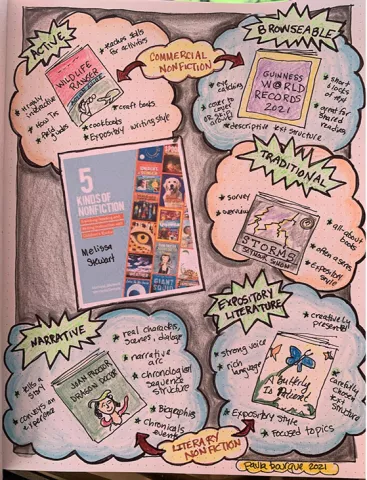 ACTIVE
* teaches skills
for activities
WILDLIFE
RANGER
* Highly
interactive
* How Tos
* field
guides
* craft books
* cookbooks
* Expository writing style
COMMERCIAL
NONFICTION
BROWSEABLE
* eye
catching
* cover to
cover
OR skip
around
GUINNESS
WORLD
RECORDS
2021
* short
blocks
of
text
* great for
shared
reading
* descriptive text structure
5
KINDS OF
NONFICTION
Melissa
Stewart
TRADITIONAL
* survey
* overview
STORMS
SEYMOUR SIMON
* all-about
books
* often a series
* Expository
style
NARRATIVE
* real characters,
scenes, dialog
* narrative
arc
* chronological
sequence
structure
* tells a
story
* conveys an
experience
JOAN PROCTER
DRAGON DOCTOR
* Biographies
* Chronicals
events
EXPOSITORY
LITERATURE
* creatively
presented
* strong voice
* rich
language
A Butterfly
Is Patient
* carefully
chosen
text
structure
* Expository style
* Focused topics
LITERARY NONFICTION
Paula Bourque 2021